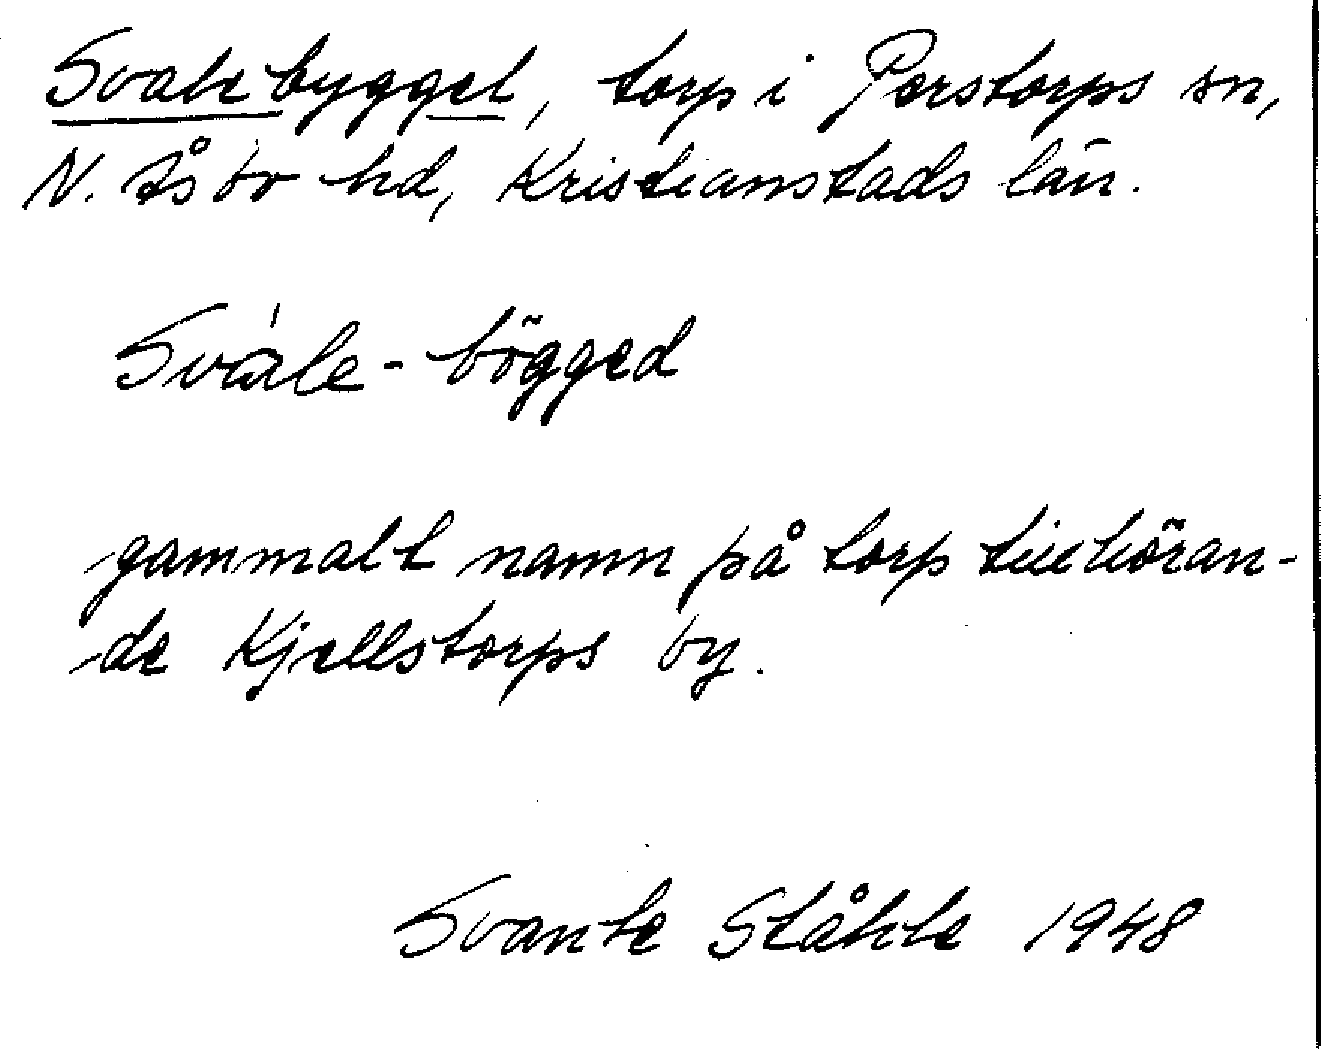 Svalebygget, torp i Perstorps sn,
N. Åsbo hd, Kristianstads län.
Svále-bögged
gammalt namn på torp tillhöran-
de Kjellstorps by.
Svante Ståhle 1948